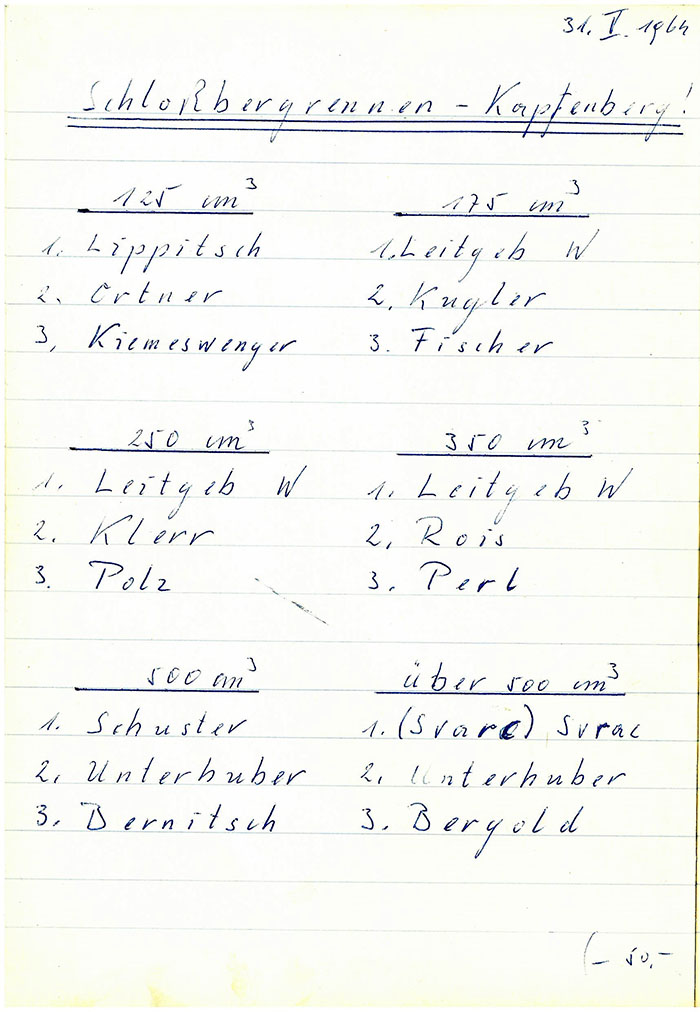 31. V. 1964
Schloßbergrennen - Kapfenberg!
125 cm³
1. Lippitsch
2. Ortner
3, Kiemeswenger
175 cm³
1. Leitgeb W
2. Kugler
3. Fischer
250 cm³
1. Leitgeb W
2. Klerr
3. Polz
350 cm³
1. Leitgeb W
2, Rois
3. Perl
500 cm³
1. Schuster
2, Unterhuber
3. Bernitsch
über 500 cm³
1. (Svarc) Svrac
2. Unterhuber
3. Bergold
(- 50,-